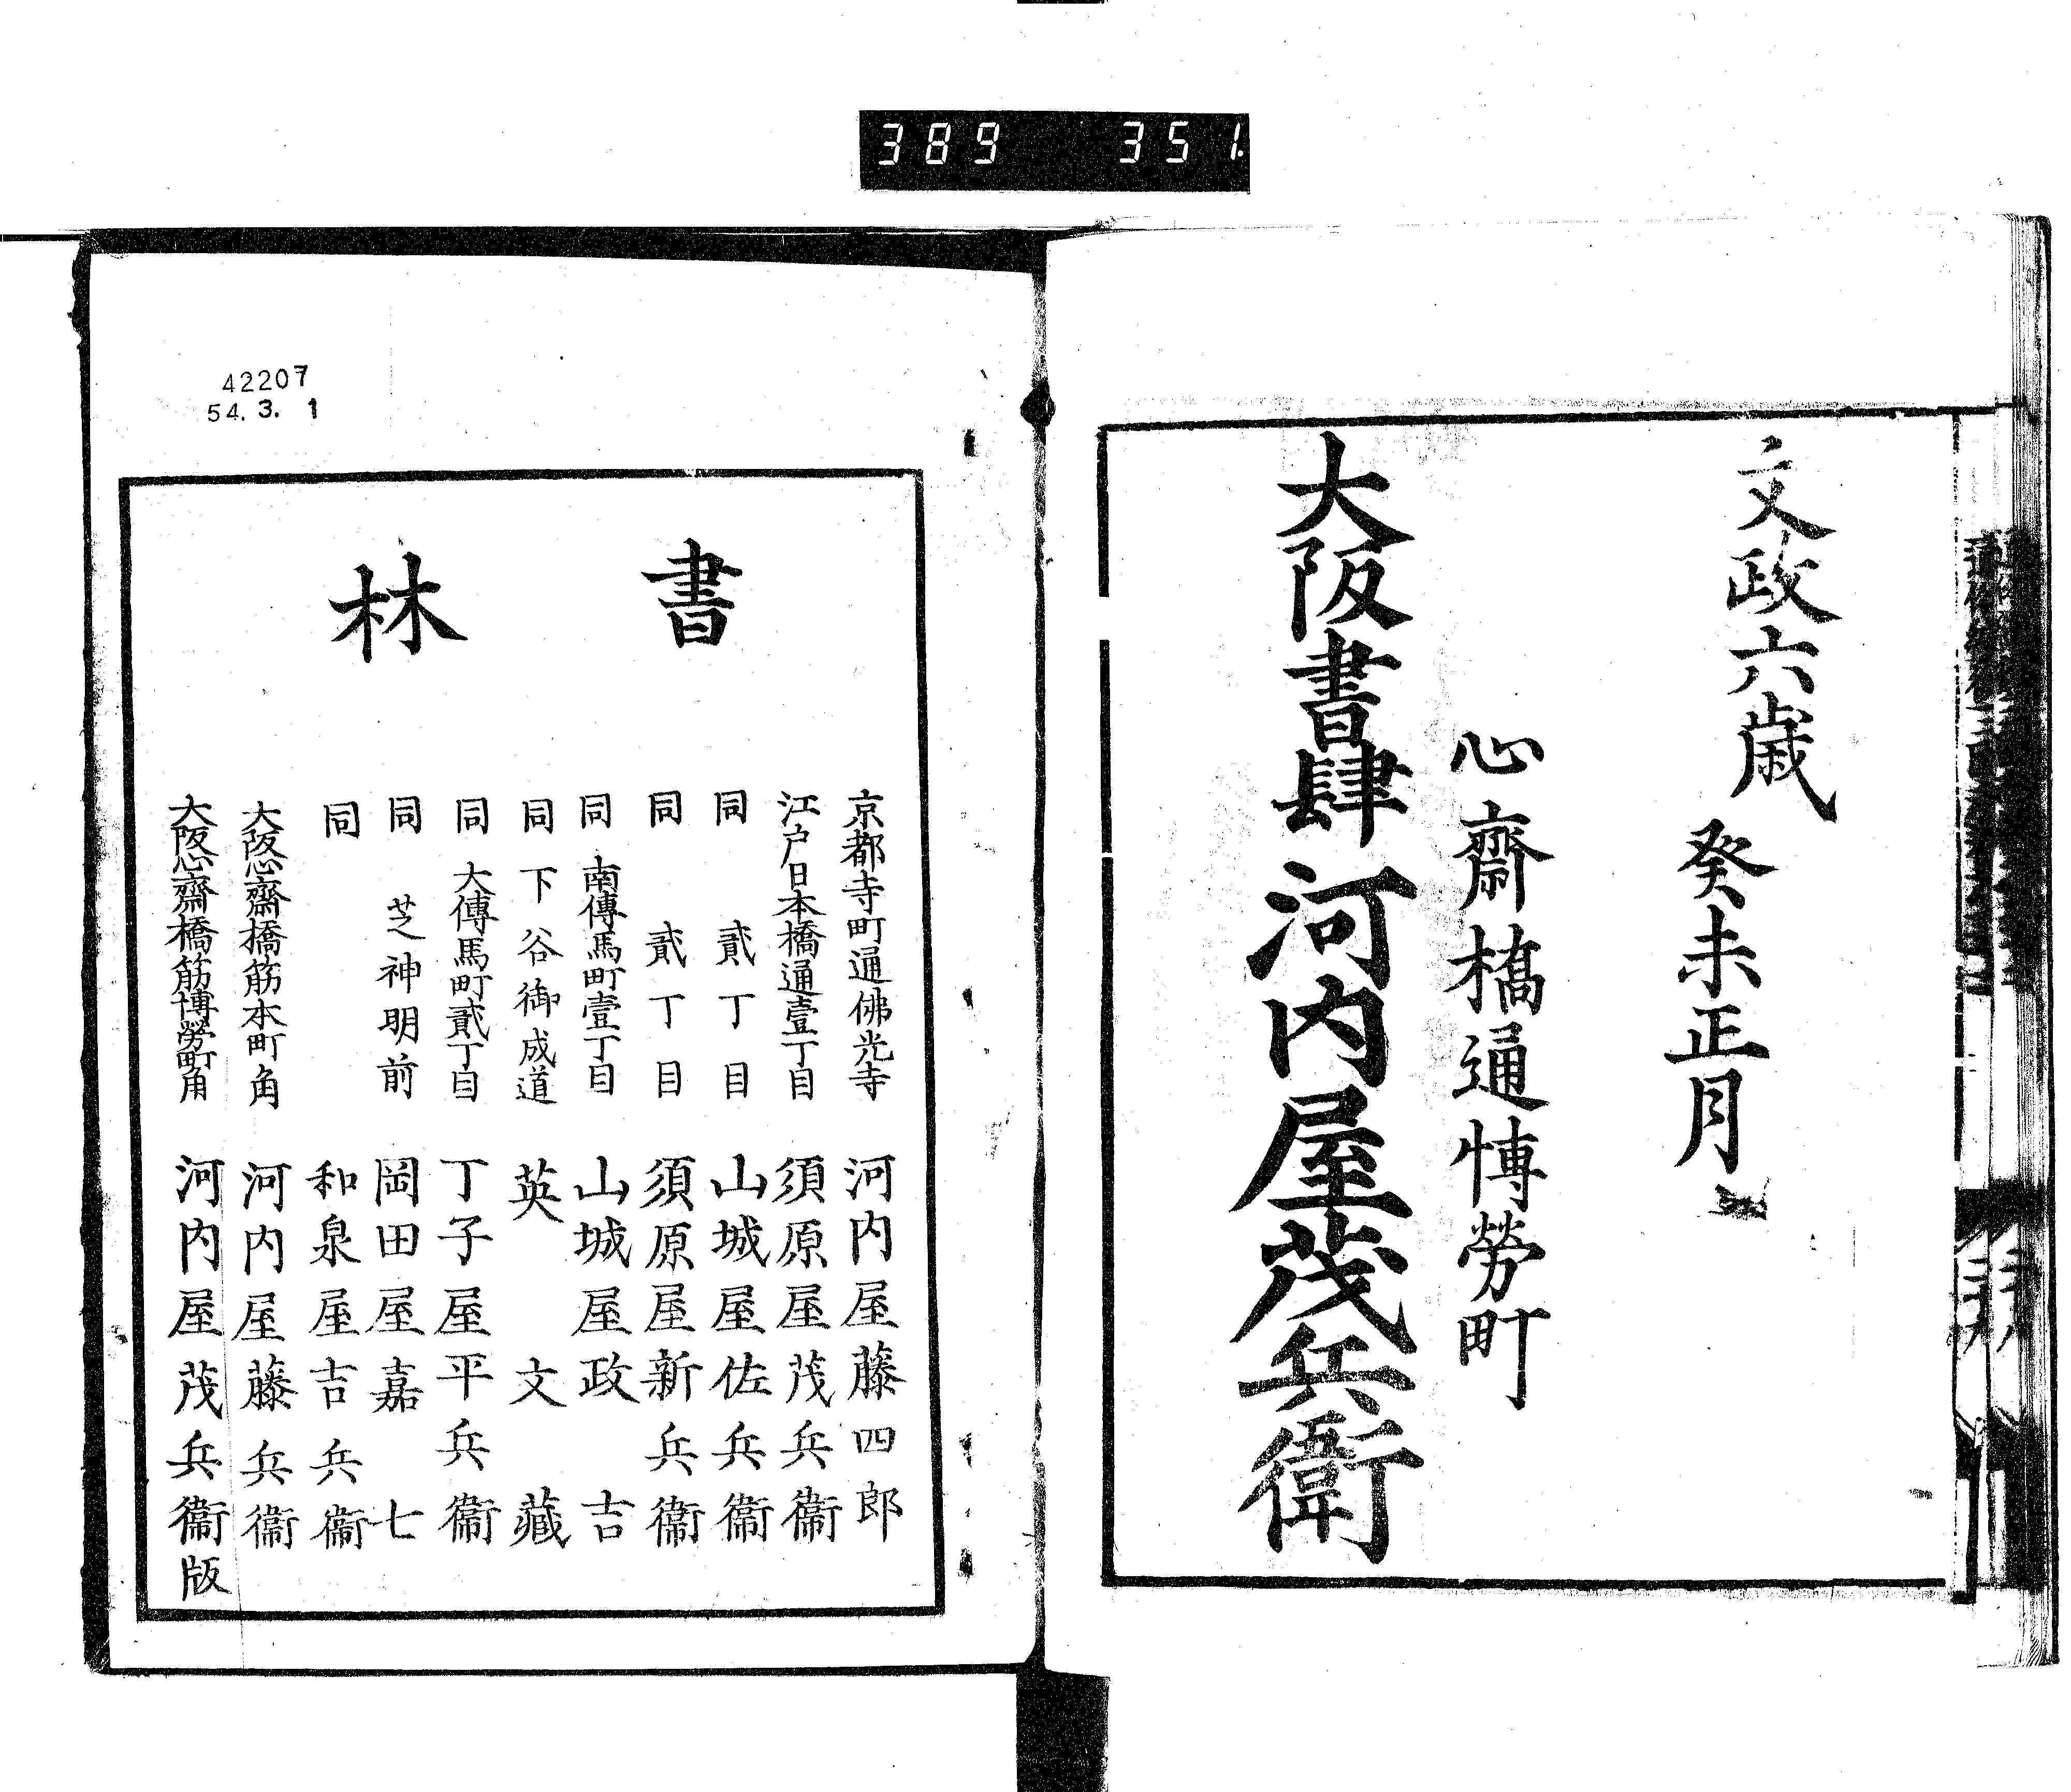 389 351.
文政六歳
癸未正月
心齋橋通博勞町
大阪書肆 河内屋茂兵衞
42207
54.3.1
書林
京都寺町通佛光寺 河内屋藤四郎
江戸日本橋通壹丁目 須原屋茂兵衞
同 貳丁目 山城屋佐兵衞
同 貳丁目 須原屋新兵衞
同 南傳馬町壹丁目 山城屋政吉
同 下谷御成道 英文藏
同 大傳馬町貳丁目 丁子屋平兵衞
同 芝神明前 岡田屋嘉七
同 和泉屋吉兵衞
大阪心齋橋筋本町角 河内屋藤兵衞
大阪心齋橋筋博勞町角 河内屋茂兵衞版